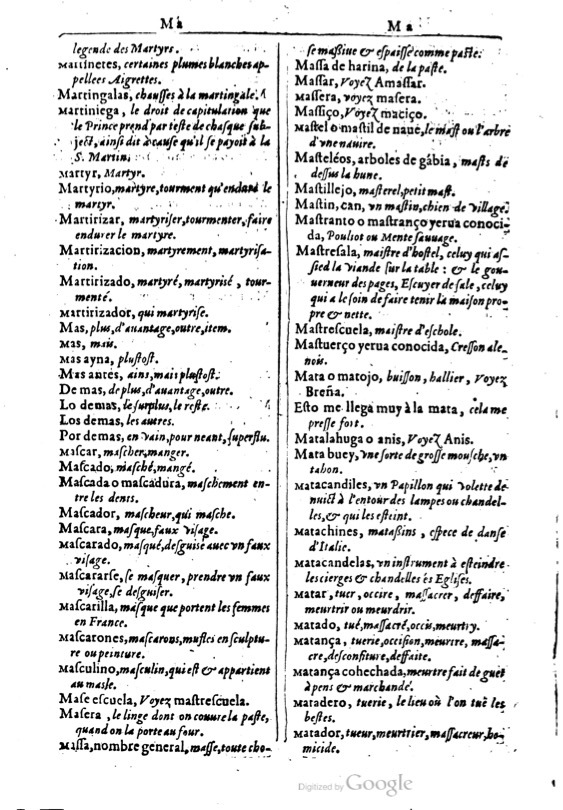 Ma
legende des Martyrs.
Martinetes, certaines plumes blanches ap-
pellees Aigrettes.
Martingalas, chausses à la martingale.
Martiniega, le droit de capitulation que
le Prince prend par teste de chasque sub-
ject, ainsi dit à cause qu'il se payoit à la
S. Martin.
Martyr, Martyr.
Martyrio, martyre, tourment qu'endure le
martyr.
Martirizar, martyriser, tourmenter, faire
endurer le martyre.
Martirizacion, martyrement, martyrisa-
tion.
Martirizado, martyré, martyrisé, tour-
menté.
Martirizador, qui martyrise.
Mas, plus, d'auantage, outre, item.
Mas, mais.
Mas ayna, plustost.
Mas antes, ains, mais plustost.
De mas, de plus, d'auantage, outre.
Lo demas, le surplus, le reste.
Los demas, les autres.
Por demas, en vain, pour neant, superflu.
Mascar, mascher, manger.
Mascado, masché, mangé.
Mascada o mascadura, maschement en-
tre les dents.
Mascador, mascheur, qui masche.
Mascara, masque, faux visage.
Mascarado, masqué, desguisé auec vn faux
visage.
Mascararse, se masquer, prendre vn faux
visage, se desguiser.
Mascarilla, masque que portent les femmes
en France.
Mascarones, mascarons, mufles en sculptu-
re ou peinture.
Masculino, masculin, qui est & appartient
au masle.
Mase escuela, Voyez mastrescuela.
Masera, le linge dont on couure la paste,
quand on la porte au four.
Massa, nombre general, masse, toute cho-
Ma
se massiue & espaisse comme paste.
Massa de harina, de la paste.
Massar, Voyez Amassar.
Massera, voyez masera.
Massiço, Voyez maciço.
Mastel o mastil de naue, le mast ou l'arbre
d'vne nauire.
Masteleós, arboles de gábia, masts de
dessus la hune.
Mastillejo, masterel, petit mast.
Mastin, can, vn mastin, chien de village.
Mastranto o mastranço yerua conoci-
da, Pouliot ou Mente sauuage.
Mastresala, maistre d'hostel, celuy qui as-
sied la viande sur la table: & le gou-
uerneur des pages, Escuyer de sale, celuy
qui a le soin de faire tenir la maison pro-
pre & nette.
Mastrescuela, maistre d'eschole.
Mastuerço yerua conocida, Cresson ale-
nois.
Mata o matojo, buisson, hallier, Voyez
Breña.
Esto me llega muy à la mata, cela me
presse fort.
Matalahuga o anis, Voyez Anis.
Mata buey, vne sorte de grosse mousche, vn
tahon.
Matacandiles, vn Papillon qui volette de
nuict à l'entour des lampes ou chandel-
les, & qui les esteint.
Matachines, matassins, espece de danse
d'Italie.
Matacandelas, vn instrument à esteindre
les cierges & chandelles és Eglises.
Matar, tuer, occire, massacrer, deffaire,
meurtrir ou meurdrir.
Matado, tué, massacré, occis, meurtry.
Matança, tuerie, occision, meurtre, massa-
cre, desconfiture, deffaite.
Matança cohechada, meurtre fait de guet
à pens & marchandé.
Matadero, tuerie, le lieu où l'on tuë les
bestes.
Matador, tueur, meurtrier, massacreur, ho-
micide.
Digitized by Google